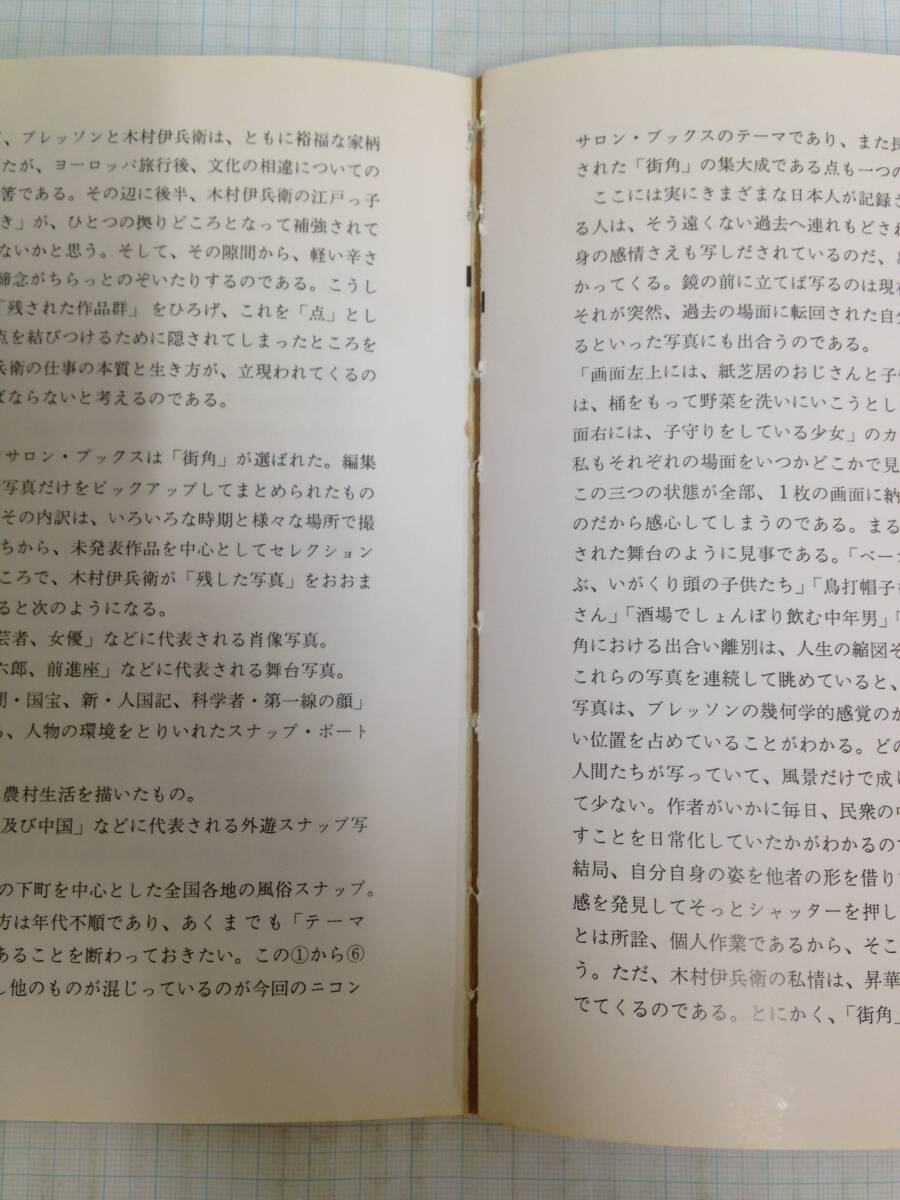 、ブレッソンと木村伊兵衛は、ともに裕福な家柄
たが、ヨーロッパ旅行後、文化の相違についての
筈である。その辺に後半、木村伊兵衛の江戸っ子
き」が、ひとつの拠りどころとなって補強されて
ないかと思う。そして、その隙間から、軽い辛さ
諦念がちらっとのぞいたりするのである。こうし
「残された作品群」をひろげ、これを「点」とし
点を結びつけるために隠されてしまったところを
兵衛の仕事の本質と生き方が、立現われてくるの
ばならないと考えるのである。
サロン・ブックスは「街角」が選ばれた。編集
写真だけをピックアップしてまとめられたもの
その内訳は、いろいろな時期と様々な場所で撮
ちから、未発表作品を中心としてセレクション
ころで、木村伊兵衛が「残した写真」をおおま
ると次のようになる。
芸者、女優」などに代表される肖像写真。
六郎、前進座」などに代表される舞台写真。
・国宝、新・人国記、科学者・第一線の顔」
る、人物の環境をとりいれたスナップ・ポート
農村生活を描いたもの。
及び中国」などに代表される外遊スナップ写
の下町を中心とした全国各地の風俗スナップ。
方は年代不順であり、あくまでも「テーマ
あることを断わっておきたい。この①から⑥
し他のものが混じっているのが今回のニコン
サロン・ブックスのテーマであり、また長
された「街角」の集大成である点も一つの
ここには実にきまざまな日本人が記録さ
る人は、そう遠くない過去へ連れもどされ
身の感情さえも写しだされているのだ、と
かってくる。鏡の前に立てば写るのは現
それが突然、過去の場面に転回された自分
るといった写真にも出合うのである。
「画面左上には、紙芝居のおじさんと子
は、桶をもって野菜を洗いにいこうとし
面右には、子守りをしている少女」のカ
私もそれぞれの場面をいつかどこかで見
この三つの状態が全部、1枚の画面に納
のだから感心してしまうのである。まる
された舞台のように見事である。「ベー
ぶ、いがくり頭の子供たち」「鳥打帽子
さん」「酒場でしょんぼり飲む中年男」「
角における出合い離別は、人生の縮図そ
これらの写真を連続して眺めていると、
写真は、ブレッソンの幾何学的感覚のか
い位置を占めていることがわかる。どの
人間たちが写っていて、風景だけで成
て少ない。作者がいかに毎日、民衆の中
すことを日常化していたかがわかるので
結局、自分自身の姿を他者の形を借り
感を発見してそっとシャッターを押し
とは所詮、個人作業であるから、そこ
う。ただ、木村伊兵衛の私情は、昇華
でてくるのである。とにかく、「街角」